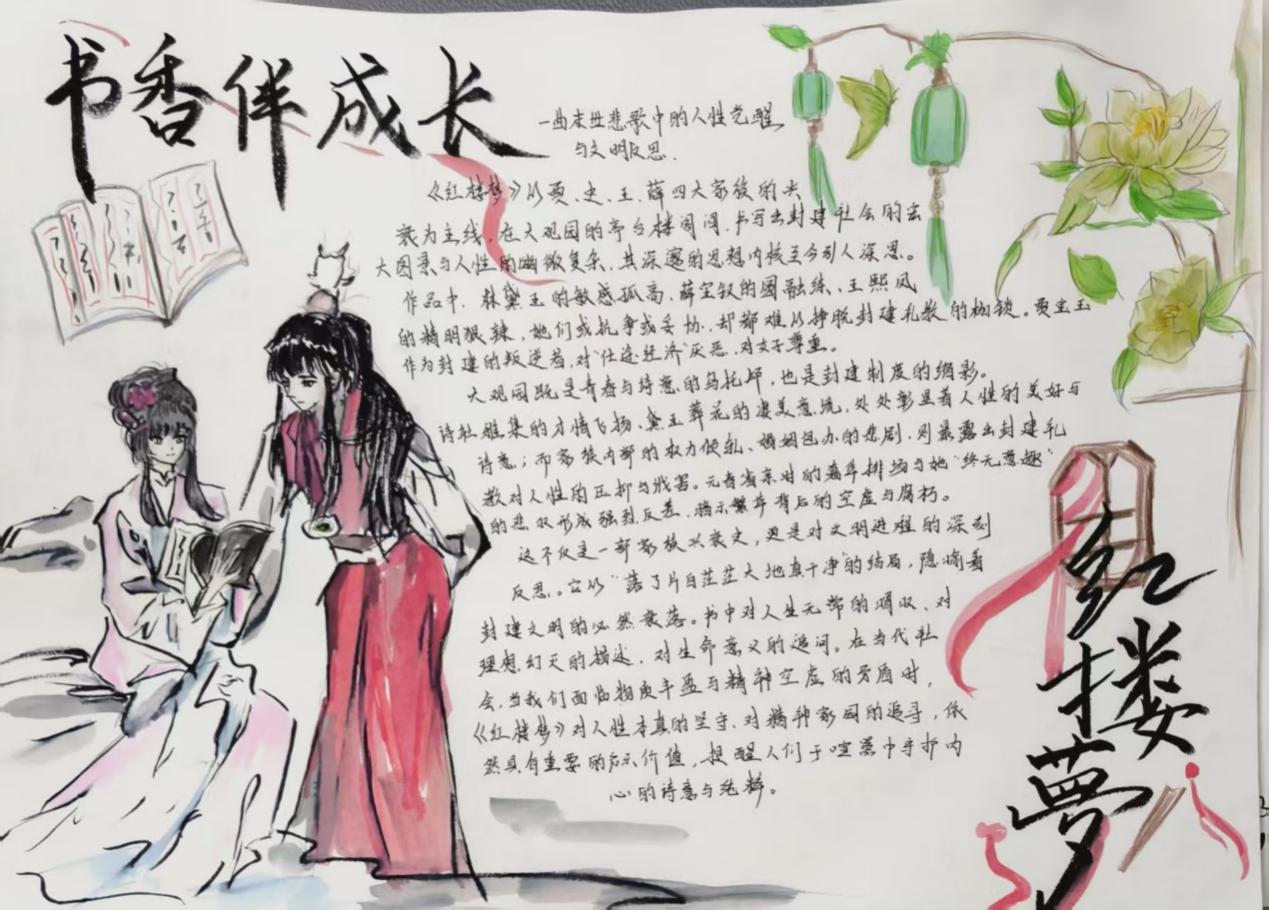 书香伴成长
一曲末世悲歌中的人性觉醒
与文明反思.
《红楼梦》以贾、史、王、薛四大家族的兴
衰为主线,在大观园的亭台楼阁间,书写出封建社会的宏
大图景与人性的幽微复杂,其深邃的思想内核至今引人深思。
作品中,林黛玉的敏感孤高、薛宝钗的圆融练、王熙凤
的精明狠辣,她们或抗争或妥协,却都难以挣脱封建礼教的枷锁。贾宝玉
作为封建的叛逆者,对"仕途经济"厌恶,对女子尊重。
大观园既是青春与诗意的乌托邦,也是封建制度的缩影。
诗社雅集的才情飞扬、黛玉葬花的凄美意境,处处彰显着人性的美好与
诗意;而家族内部的权力倾轧、婚姻包办的悲剧,则暴露出封建礼
教对人性的压抑与戕害。元春省亲时的奢华排场与她"终无意趣"
的悲叹形成强烈反差,揭示繁华背后的空虚与腐朽。
这不仅是一部家族兴衰史,更是对文明进程的深刻
反思。它以"落了片白茫茫大地真干净"的结局,隐喻着
封建文明的必然衰落。书中对人生无常的喟叹、对
理想幻灭的描述,对生命意义的追问。在当代社
会,当我们面临物质丰盈与精神空虚的矛盾时,
《红楼梦》对人性本真的坚守、对精神家园的追寻,依
然具有重要的启示价值,提醒人们于喧嚣中守护内
心的诗意与纯粹。
红楼梦